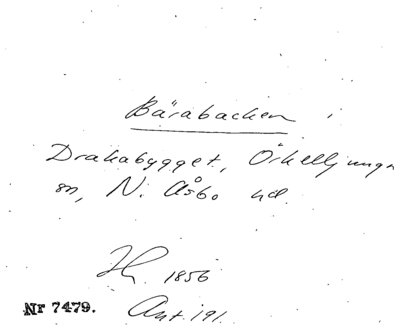 Bärabacken i
Drakabygget, Örkelljunga
sn, N. Åsbo hd.
1856
Nr 7479.
Ant. 191.